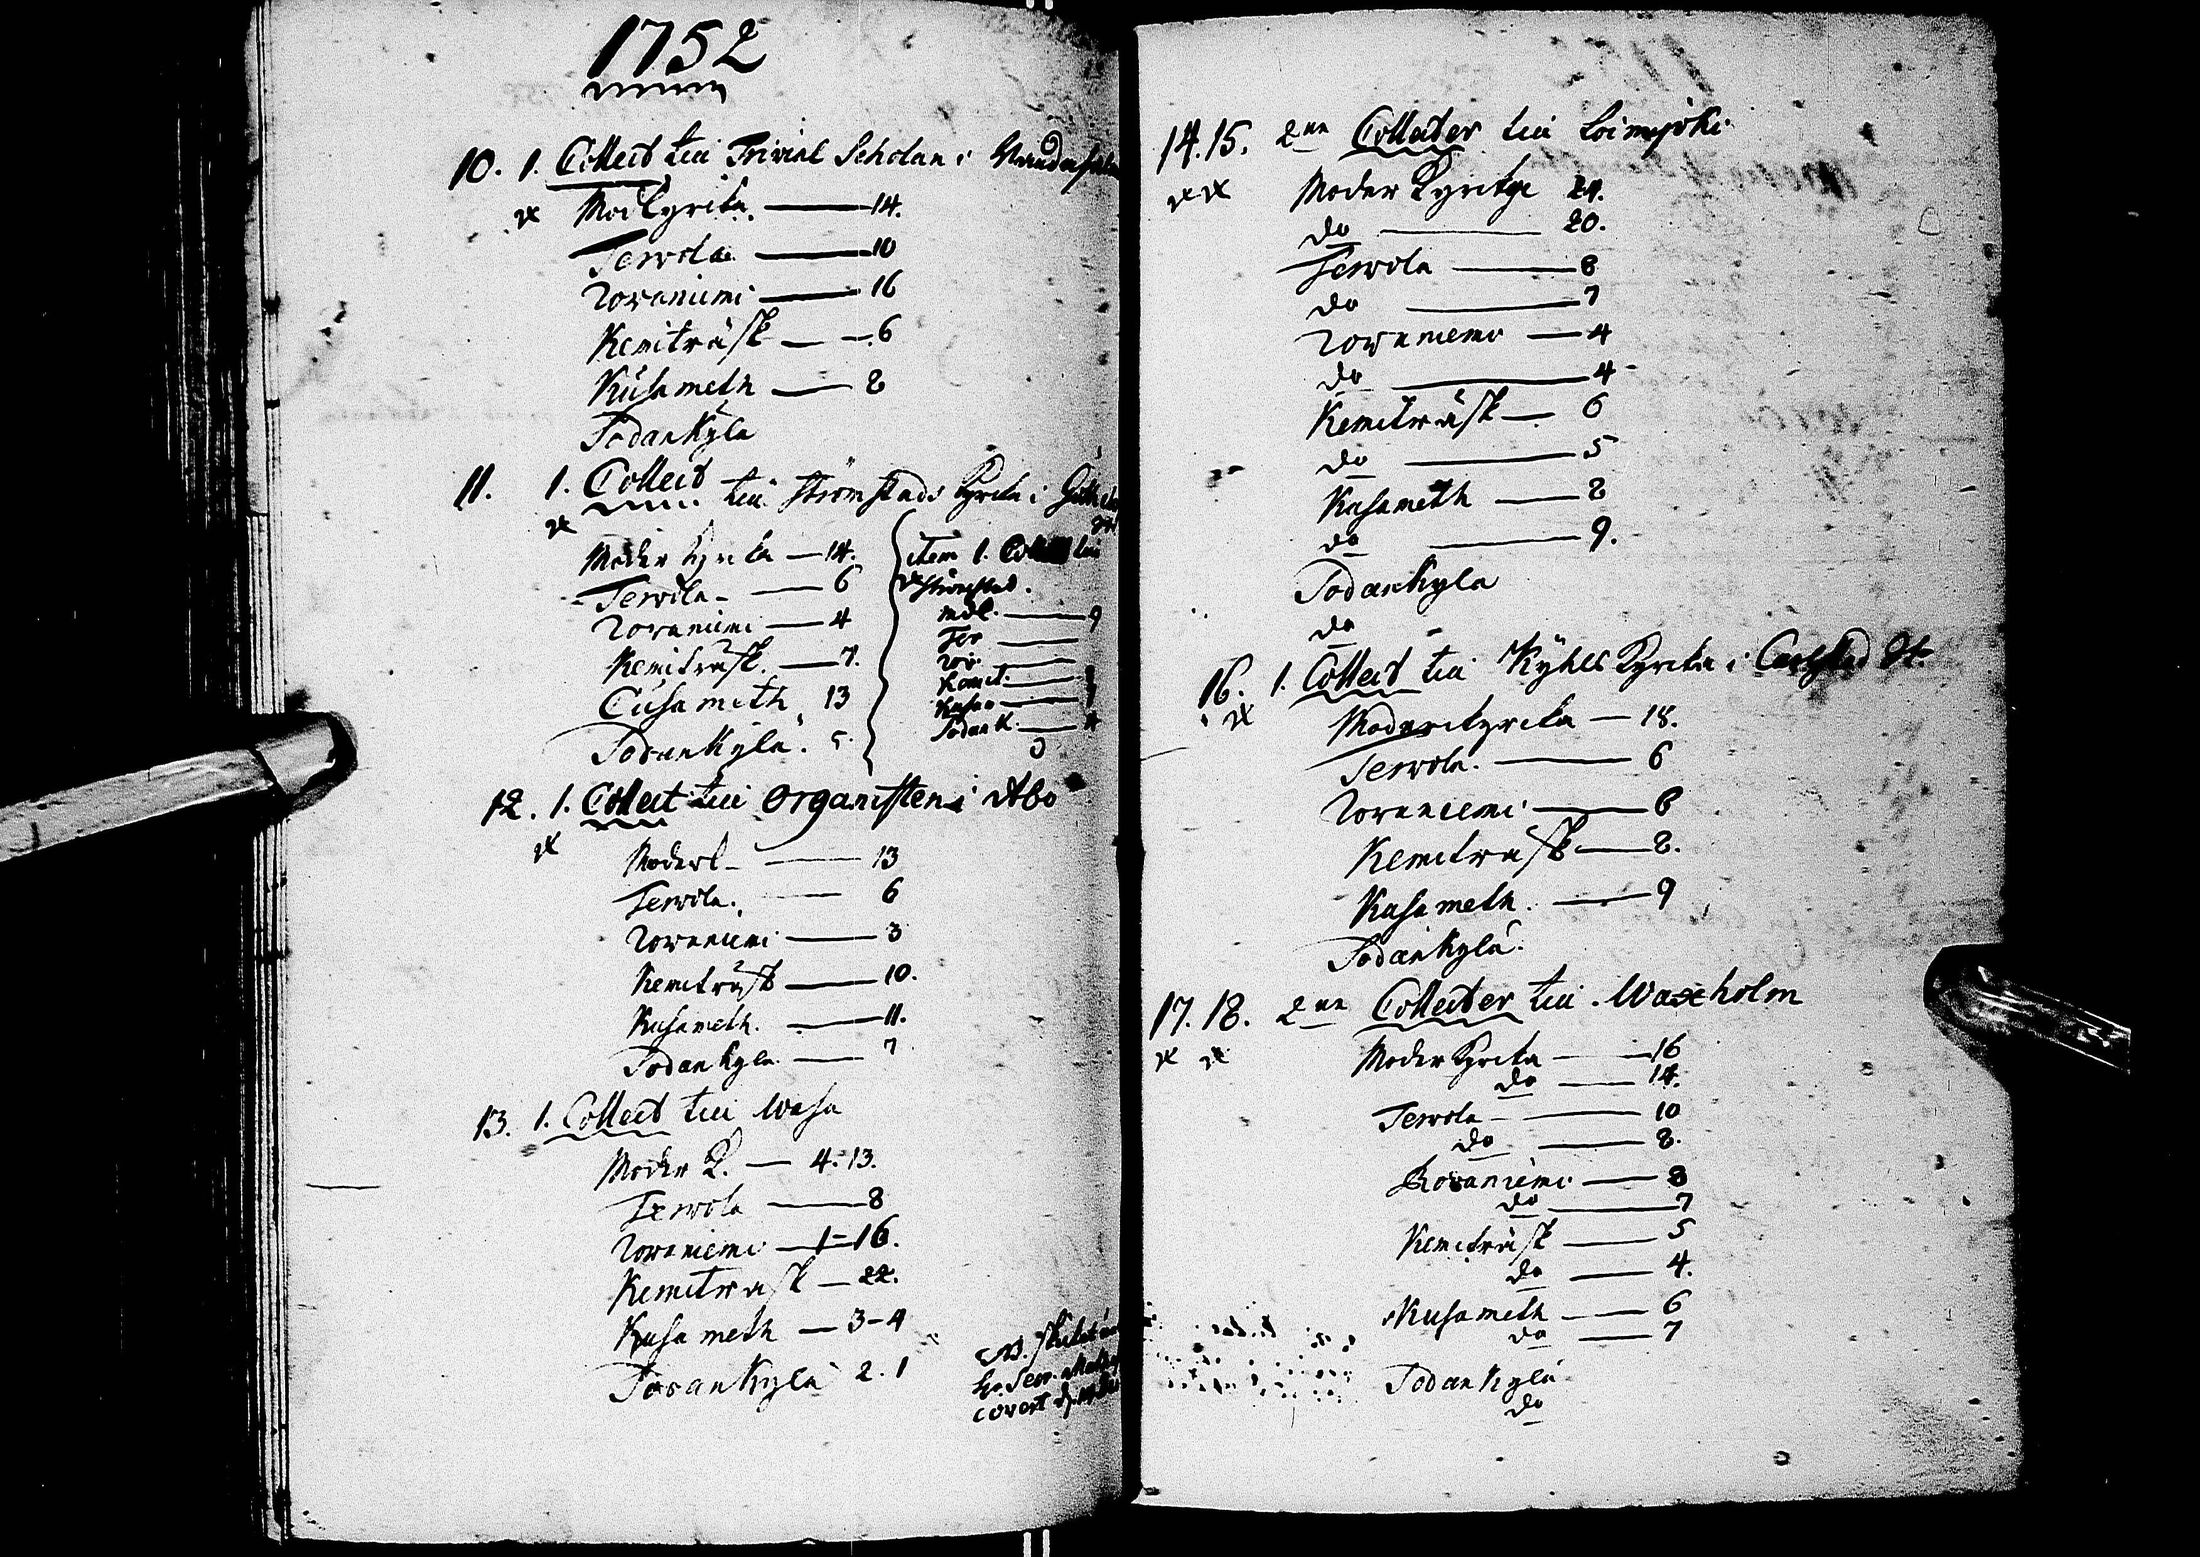 1752
10. 1. Collect till Trivial Scholan i
Mod Kyrcka. — 14.
Terwola — 10
Rowaniemi — 16
Kemiträsk — 6
Kusameth — 8
Sodankyla
11. 1. Collect till Strömstads Kyrcka i
Moder Kyrcka — 14.
Terwola — 6
Rowaniemi — 4
Kemiträsk. — 7.
Cusameth 13
Sodankylä. 5.
item 1. Collect till
Strömstad.
mdk. — 9
Ter —
Row —
Kemit. —
Kusa —
Sodank. — 4
12. 1. Collect till Organisten i Abo
Moderk — 13
Terwola. — 6
Rowaniemi — 3
Kemitrask — 10.
Kusameth. — 11.
Sodankyla — 7
13. 1. Collect till Wasa
Moder K. — 4. 13.
Terwola — 8
Rowaniemi — 1-16.
Kemitrask — 22.
Kusameth — 3-4
Sodankylä 2. 1
NB.
14. 15. 2ne Collecter till Loimijoki
Moder Kyrckje 24.
do — 20.
Terwola — 8
do — 7
Rowaniemi — 4
do — 4
Kemiträsk — 6
do — 5
Kusameth — 8
do — 9.
Sodankyla
do
16. 1. Collect till Kyhls Kyrcka i Carlstad St.
Moderkyrcka — 18.
Terwola. — 6
Rowaniemi — 8
Kemitrask — 8.
Kusameth. — 9
Sodankylä.
17. 18. 2ne Collecter till Waxholm
Moder Kyrcka — 16
do — 14.
Terwola — 10
do — 8.
Rowaniemi — 8
do — 7
Kemiträsk — 5
do — 4.
Kusameth — 6
do — 7
Sodankylä
do